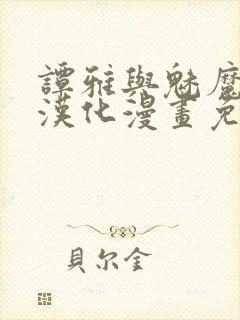 譚雅與魅魔
漢化漫畫免
貝尔金